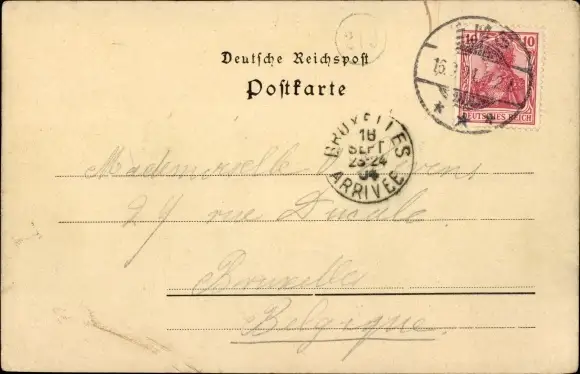 Deutsche Reichspost
Postkarte
10
10
DEUTSCHES REICH
BRUXELLES
18
SEPT
23-24
04
ARRIVÉE
Mademoiselle
27 rue Ducale
Bruxelles
Belgique